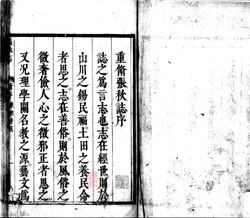 重脩張秋誌序
誌之為言志也志在經世則於
山川之錫民福土田之養民命
者思之志在善俗則於風俗之
微奢儉人心之微邪正者思之
又况理學關名教之源藝文為